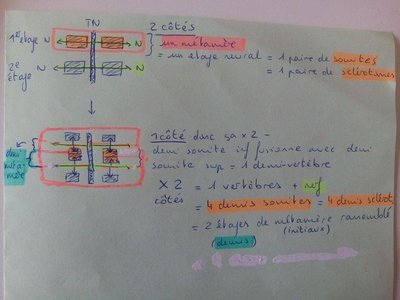 TN
2 côtés
1er étage
N
N
un métamère
= un étage neural = 1 paire de somites
= 1 paire de sclérotomes
2e étage
N
N
demi métamère
1 côté donc ça x 2 -
demi somite inf fusionne avec demi
somite sup = 1 demi-vertèbre
x 2 = 1 vertèbres + nerf
côtés = 4 demis somites = 4 demis sclérot
= 2 étages de métamère rassemblé
(demis) (initiaux)